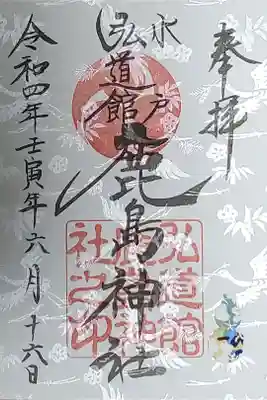 奉拝
水戸
弘道館
鹿島神社
令和四年壬寅年六月十六日
弘道館
鹿島神
社之印